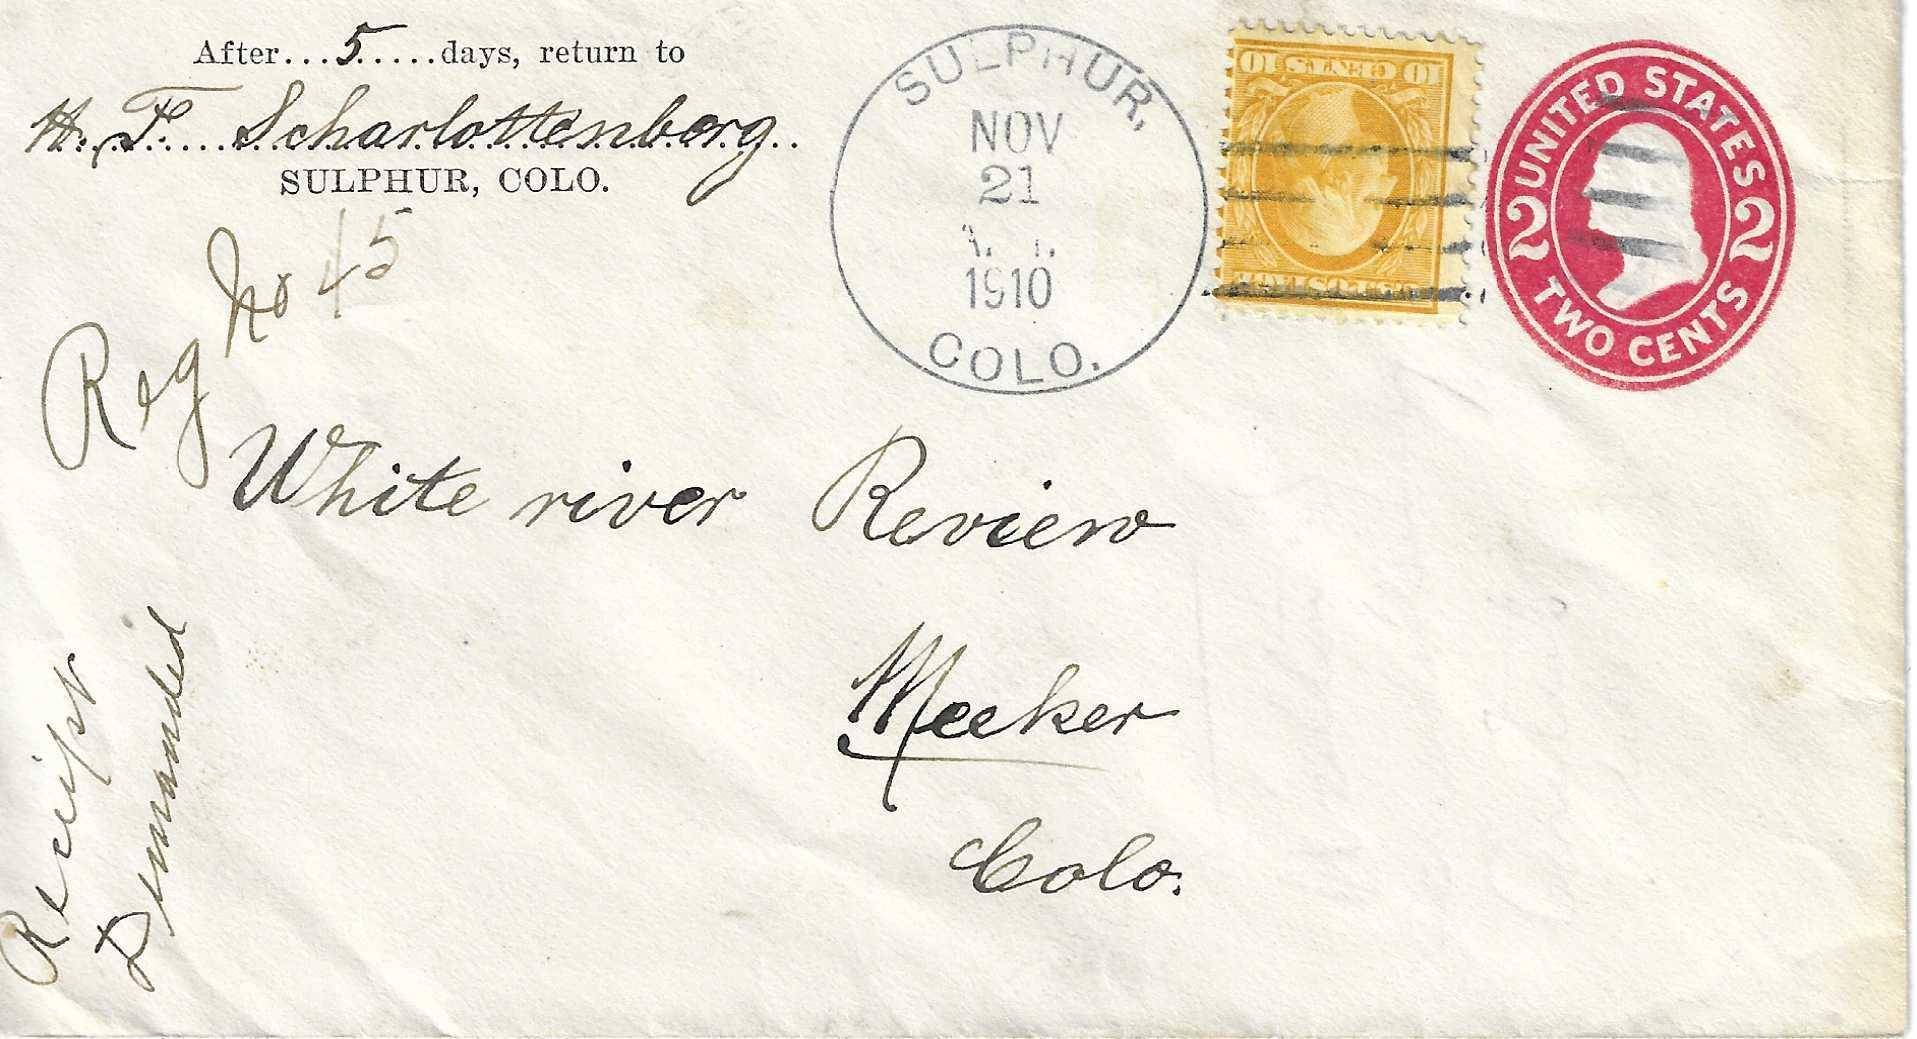 After...5.....days, return to
H. F. Scharlottenborg
SULPHUR, COLO.
Reg No 45
SULPHUR,
NOV
21
1910
COLO.
10 CENTS 10
U.S. POSTAGE
UNITED STATES
2 2
TWO CENTS
White river Review
Meeker
Colo.
Receipt
Demanded